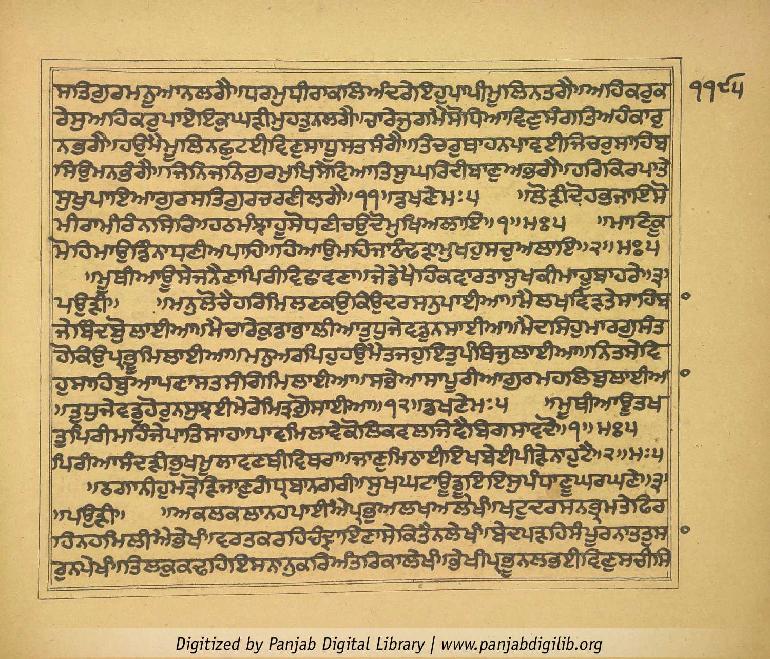 ਸਤਿਗੁਰਮਨੂਆਨਲਗੈ॥ਧਰਮੁਧੀਰਾਕਲਿਅੰਦਰੇਇਹੁਪਾਪੀਮੂਲਿਨਤਗੈ॥ਅਹਿਕਰੁਕ ੧੧੯੫
ਰੇਸੁਅਹਿਕਰੁਪਾਏਇਕੁਘੜੀਮੁਹਤੁਨਲਗੈ॥ਚਾਰੇਜੁਗਮੈਸੋਧਿਆਵਿਣੁਸੰਗਤਿਅਹੰਕਾਰੁ
ਨਭਗੈ॥ਹਉਮੈਮੂਲਿਨਛੁਟਈਵਿਣੁਸਾਧੂਸਤਸੰਗੈ॥ਤਿਚਰੁਥਾਹਨਪਾਵਈਜਿਚਰੁਸਾਹਿਬ
ਸਿਉਮਨਭੰਗੈ॥ਜਿਨਿਜਨਿਗੁਰਮੁਖਿਸੇਵਿਆਤਿਸੁਘਰਿਦੀਬਾਣੁਅਭਗੈ॥ਹਰਿਕਿਰਪਾਤੇ
ਸੁਖੁਪਾਇਆਗੁਰਸਤਿਗੁਰਚਰਣੀਲਗੈ॥੧੧॥ਡਖਣੇਮਃ੫ ॥ਲੋੜੀਦੋਹਭਜਾਇਸੋ
ਮੀਰਾਮੀਰੰਨਸਿਰਿ॥ਹਠਮੰਝਾਹੂਸੋਧਣੀਚਉਦੋਮੁਖਿਅਲਾਇ॥੧॥ਮਃ੫ ॥ਮਾਣਿਕੂ
ਮੋਹਿਮਾਉਡਿੰਨਾਧਣੀਅਪਾਹਿ॥ਹਿਆਉਮਹਿਜਾਠੰਢੜਾਮੁਖਹੁਸਚੁਅਲਾਇ॥੨॥ਮਃ੫
॥ਮੂਥੀਆਊਸੇਜਨੈਣਾਪਿਰੀਵਿਛਾਵਣਾ॥ਜੇਡੇਖੈਹਿਕਵਾਰਤਾਸੁਖਕੀਮਾਹੂਬਾਹਰੇ॥੩॥
ਪਉੜੀ॥ ॥ਮਨੁਲੋਚੈਹਰਿਮਿਲਣਕਉਕਿਉਦਰਸਨੁਪਾਈਆ॥ਮੈਲਖਵਿੜਤੇਸਾਹਿਬਾ
ਜੇਬਿੰਦਬੋੁਲਾਈਆ॥ਮੈਚਾਰੇਕੁੰਡਾਭਾਲੀਆਤੁਧੁਜੇਵਡੁਨਸਾਈਆ॥ਮੈਦਸਿਹੁਮਾਰਗੁਸੰਤ
ਹੋਕਿਉਪ੍ਰਭੂਮਿਲਾਈਆ॥ਮਨੁਅਰਪਿਹੁਹਉਮੈਤਜਹੁਇਤੁਪੰਥਿਜੁਲਾਈਆ॥ਨਿਤਸੇਵਿ
ਹੁਸਾਹਿਬੁਆਪਣਾਸਤਸੰਗਿਮਿਲਾਈਆ॥ਸਭੇਆਸਾਪੂਰੀਆਗੁਰਮਹਲਿਬੁਲਾਈਆ
॥ਤੁਧੁਜੇਵਡੁਹੋਰੁਨਸੁਝਈਮੇਰੇਮਿਤ੍ਰਗੋੁਸਾਈਆ॥੧੨॥ਡਖਣੇਮਃ੫ ॥ਮੂਥੀਆਊਤਖ
ਤੁਪਿਰੀਮਹਿੰਜੇਪਾਤਿਸਾਹ॥ਪਾਵਮਿਲਾਵੇਕੋਲਿਕਵਲਜਿਵੈਬਿਗਸਾਵਦੋ॥੧॥ਮਃ੫
ਪਿਰੀਆਸੰਦੜੀਭੁਖਮੂਲਾਵਣਥੀਵਿਥਰਾ॥ਜਾਣੁਮਿਠਾਈਇਖਬੇਈਪੀੜੇਨਾਹੁਟੈ॥੨॥ਮਃ੫
॥ਠਗਾਨੀਹੁਮਤ੍ਰੋੜਿਜਾਣੁਗੰਧ੍ਰਬਾਨਗਰੀ॥ਸੁਖਘਟਾਊਡੂਇਇਸੁਪੰਧਾਣੂਘਰਘਣੇ॥੩॥
॥ਪਉੜੀ॥ ॥ਅਕਲਕਲਾਨਹਪਾਈਐਪ੍ਰਭੁਅਲਖਅਲੇਖੰ॥ਖਟੁਦਰਸਨਭ੍ਰਮਤੇਫਿਰ
ਹਿਨਹਮਿਲੀਐਭੇਖੰ॥ਵਰਤਕਰਹਿਚੰਦ੍ਰਾਇਣਾਸੇਕਿਤੈਨਲੇਖੰ॥ਬੇਦਪੜਹਿਸੰਪੂਰਨਾਤਤੁਸਾ
ਰਨਪੇਖੰ॥ਤਿਲਕੁਕਢਹਿਇਸਨਾਨੁਕਰਿਅੰਤਰਿਕਾਲੇਖੰ॥ਭੇਖੀਪ੍ਰਭੂਨਲਭਈਵਿਣੁਸਚੀਸਿ
Digitized by Panjab Digital Library | www.panjabdigilib.org